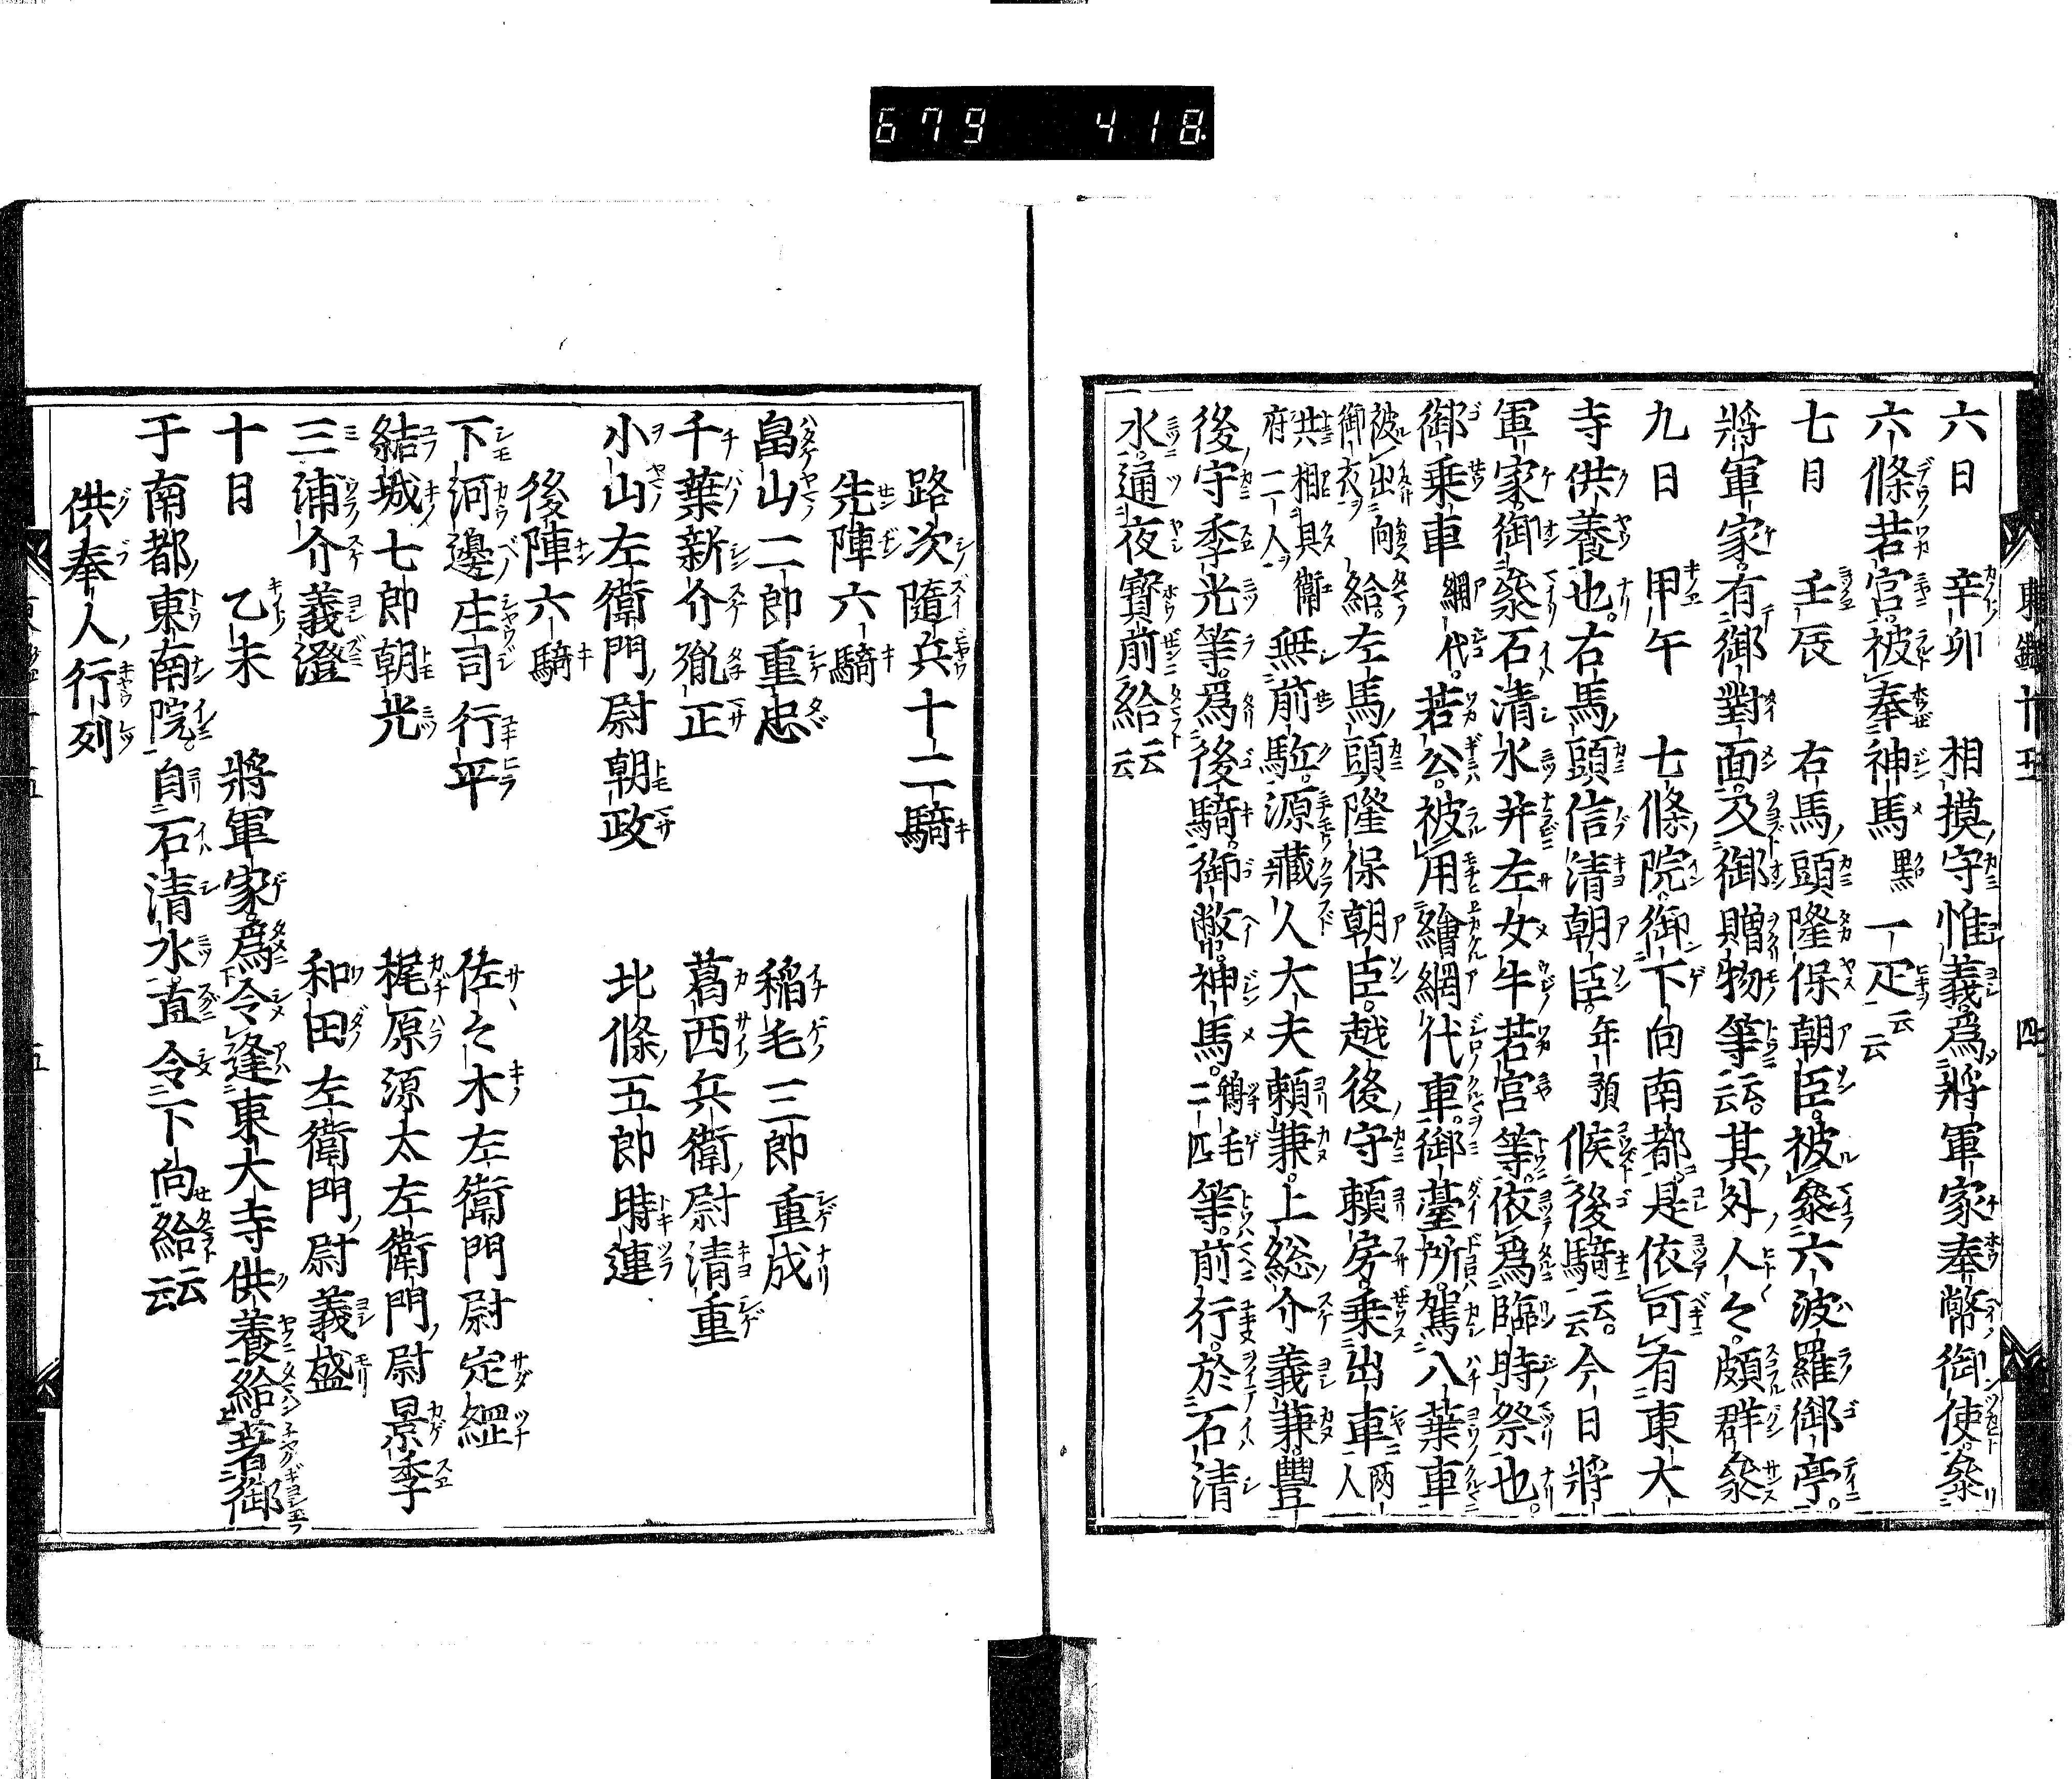 679 418
東鑑 廿五 四
六日 辛卯 相摸守惟義爲將軍家奉幣御使參
六條若宮被奉神馬 黒 一疋云云
七日 壬辰 右馬頭隆保朝臣被參六波羅御亭
將軍家有御對面及御贈物等云云其外人々頗群參
九日 甲午 七條院御下向南都是依可有東大
寺供養也右馬頭信清朝臣年預候後騎云云今日將
軍家御參石清水并左女牛若宮等依爲臨時祭也
御乗車 網代 若公被用繪網代車御臺所駕八葉車
被出向御衣 給左馬頭隆保朝臣越後守頼房乗出車 両人
共相具府二人 衞無前駈源藏人大夫頼兼上総介義兼豐
後守季光等爲後騎御幣神馬 鴾毛二匹 等前行於石清
水通夜寳前給云云
路次隨兵十二騎
先陣六騎
畠山二郎重忠 稲毛三郎重成
千葉新介胤正 葛西兵衞尉清重
小山左衞門尉朝政 北條五郎時連
後陣六騎
下河邊庄司行平 佐々木左衞門尉定綱
結城七郎朝光 梶原源太左衞門尉景季
三浦介義澄 和田左衞門尉義盛
十日 乙未 將軍家爲令逢東大寺供養給著御
于南都東南院自石清水直令下向給云云
供奉人行列